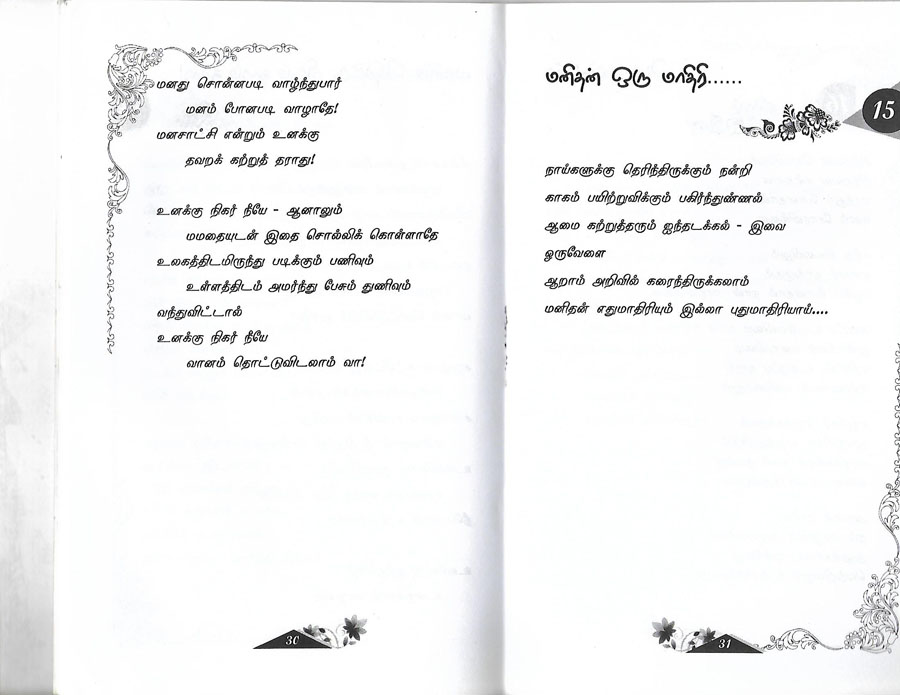 மனது சொன்னபடி வாழ்ந்துபார்
மனம் போனபடி வாழாதே!
மனசாட்சி என்றும் உனக்கு
தவறக் கற்றுத் தராது!
உனக்கு நிகர் நீயே - ஆனாலும்
மமதையுடன் இதை சொல்லிக் கொள்ளாதே
உலகத்திடமிருந்து படிக்கும் பணிவும்
உள்ளத்திடம் அமர்ந்து பேசும் துணிவும்
வந்துவிட்டால்
உனக்கு நிகர் நீயே
வானம் தொட்டுவிடலாம் வா!
30
மனிதன் ஒரு மாதிரி......
15
நாய்களுக்கு தெரிந்திருக்கும் நன்றி
காகம் பயிற்றுவிக்கும் பகிர்ந்துண்ணல்
ஆமை கற்றுத்தரும் ஐந்தடக்கல் - இவை
ஒருவேளை
ஆறாம் அறிவில் கரைந்திருக்கலாம்
மனிதன் எதுமாதிரியும் இல்லா புதுமாதிரியாய்....
31